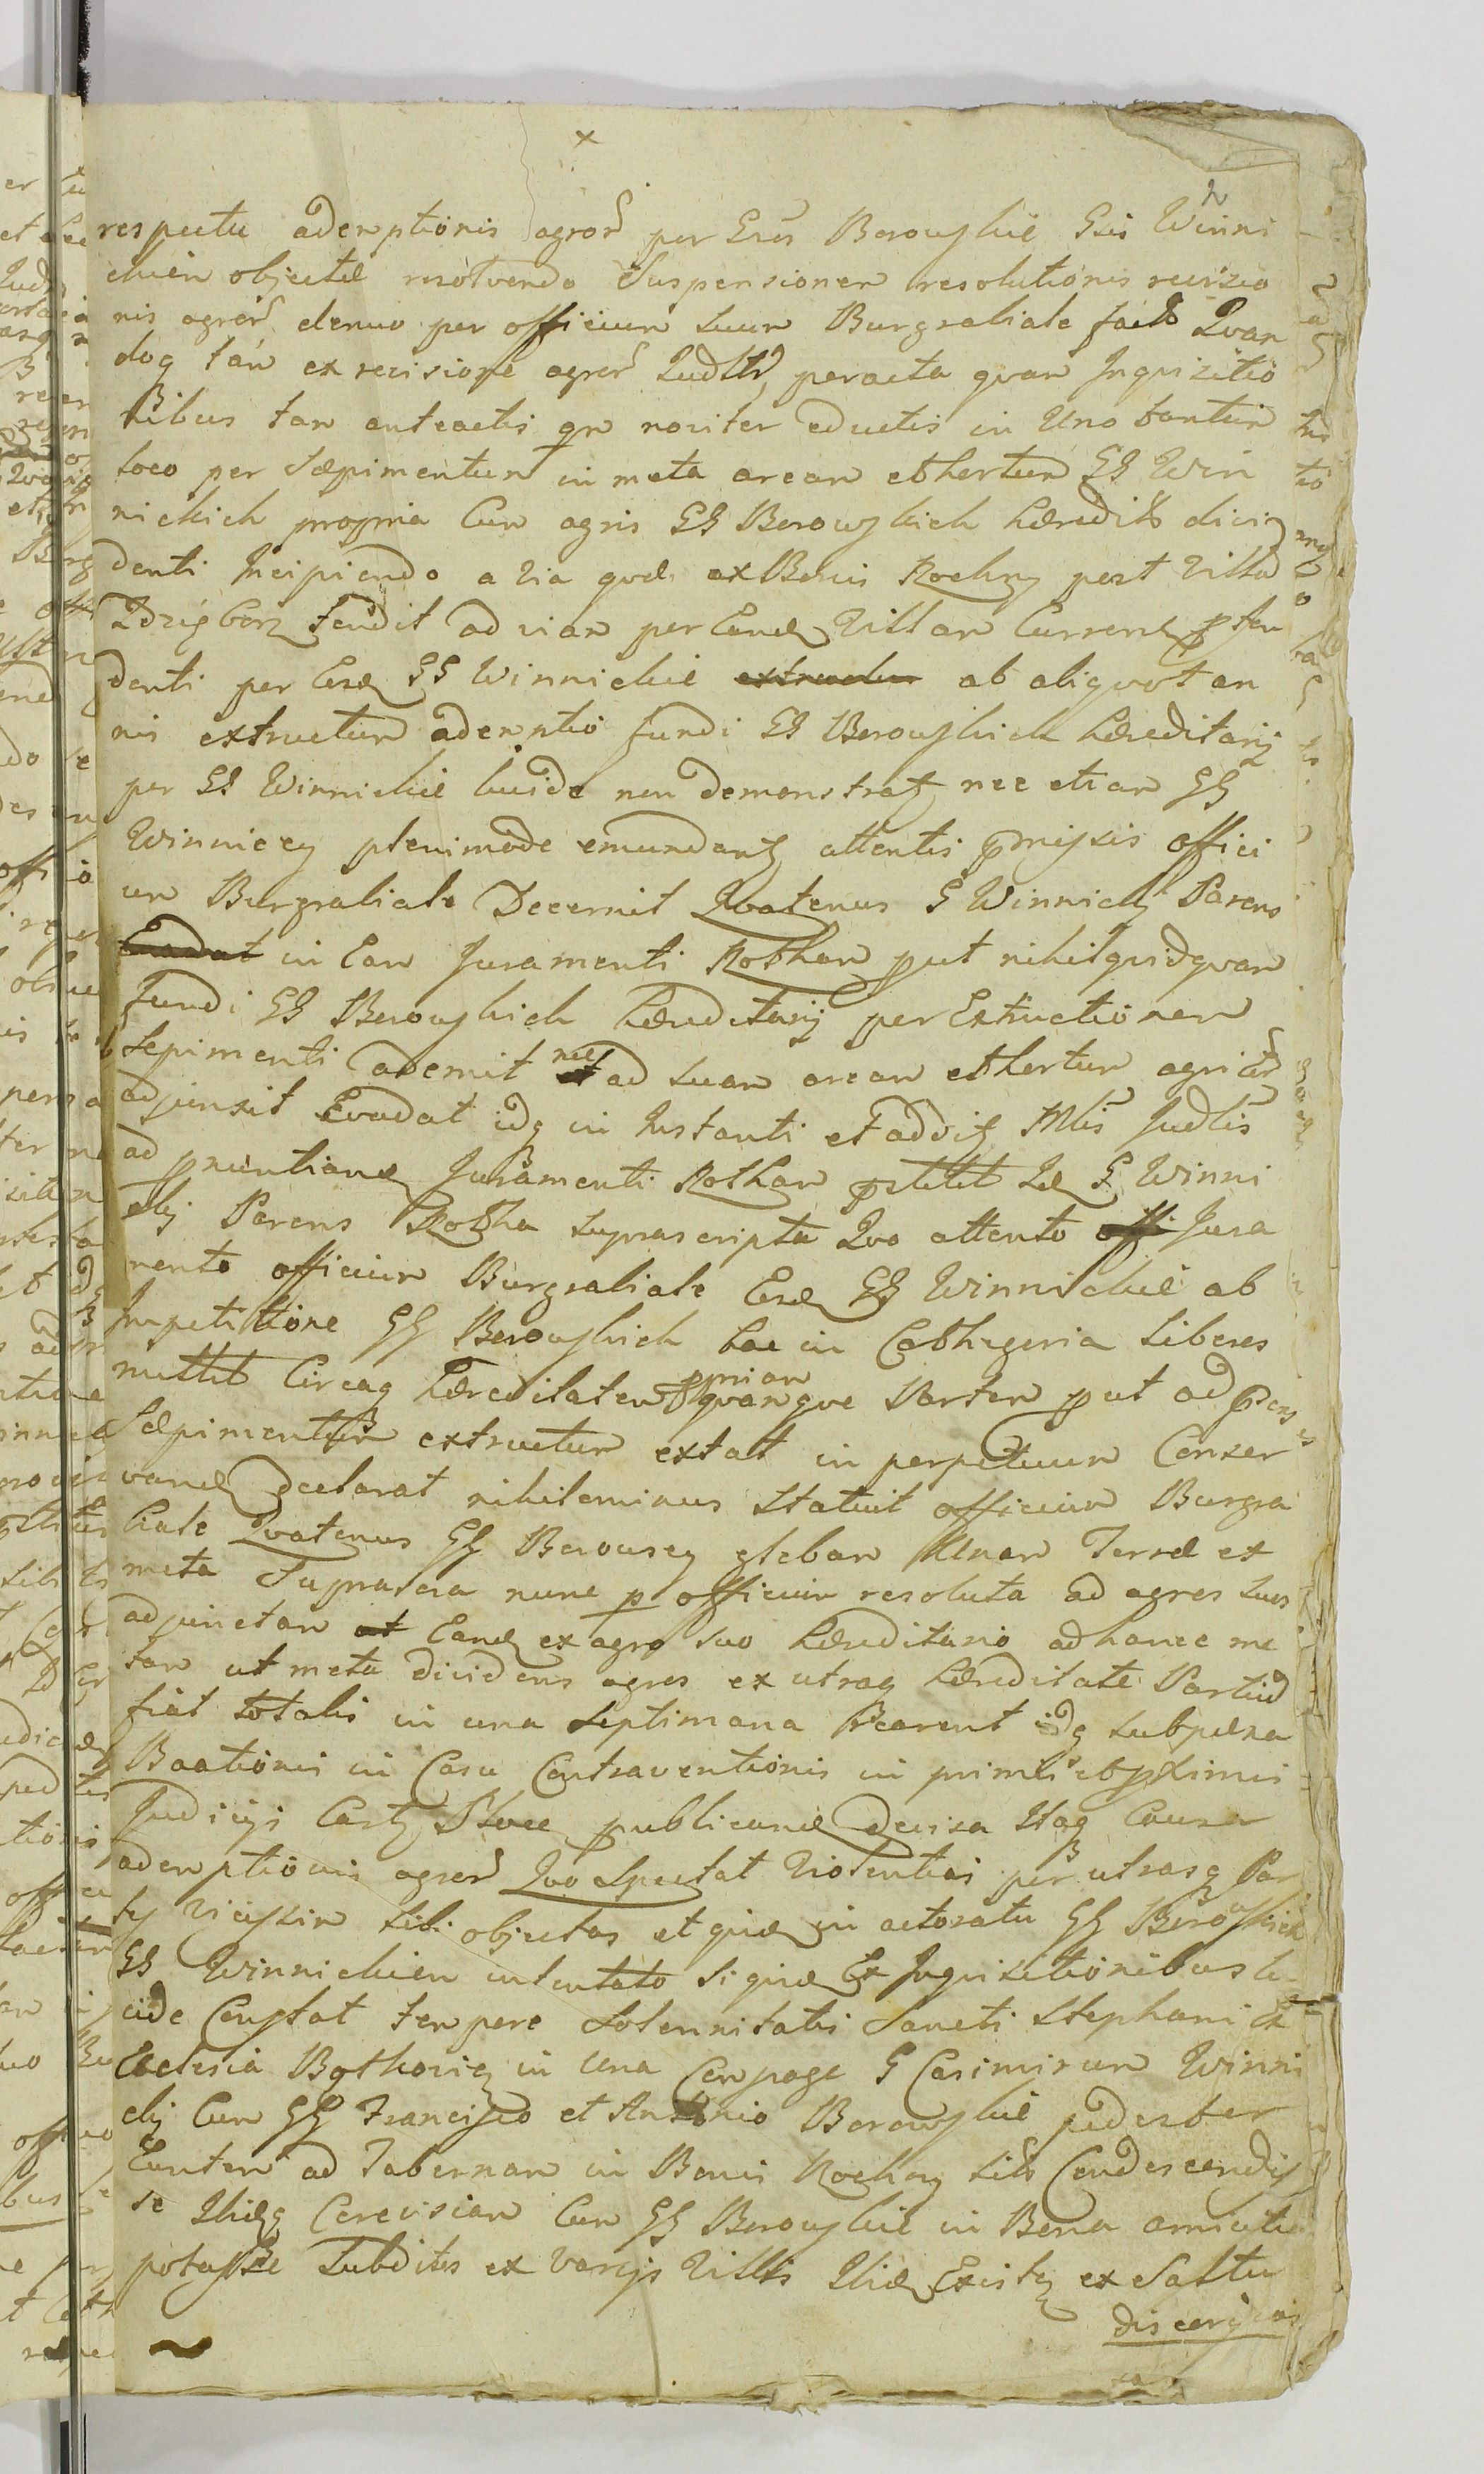 respectu ademptionis agror per Eos Borowskie GGis Winni
ckien objectae resolvendo Suspensionem resolutionis revisio
nis agror denuo per officium suum Burgrabiale facta Quan
doq tam ex revisione agror Judltr peracta quam Inquisitio
nibus tam anteactis qm noviter eductis in Uno tantum
loco per Sepimentum in meta aream et hortum GG Win
nickich propria Cum agris GG Borowskich haeredit divi
denti Incipiendo a via quae ex Bonis Rochny post Villa
Zdzigborz tendit ad viam per Eand Villam Curren pten
denti per Eosd GG Winnickie ab aliquot an
nis extructum ademptio fundi GG Borowskich haereditarij
per GG Winnickie lucide non demonstratz nec etiam GG
Winniccy plenimode emundantz attentis pmissis offici
um Burgrabiale Decernit Quatenus G Winnicky Parens
in Eam Juramenti Rotham put nihil quidquam
fundi GG Borowskich haereditarij per Extructionem
Sepimenti ademit nec ad suam aream et hortum agri
adjunxit Evadat idq in Instanti et addit Mtis Judlis
ad pnuntiand Juramenti Rotham pstitit Id G Winni
cky Parens Rotha suprascripta Quo attento Jura
mento officium Burgrabiale Eosd GG Winnickie ab
Impetitione GG Borowskich hac in Cathegoria liberos
mittit Circaq haereditatem ppriam quamque Partem put ad psens
Saepimentum extructum extat in perpetuum Conser
vand declarat nihilominus Statuit officium Burgra
biale Quatenus GG Borowscy glebam Unam Terrae ex
meta Supra sua nunc p officium resoluta ad agros suos
adjunctam Eand ex agro suo haereditario ad hancce me
tam ut meta dividens agros ex utraq haereditate Partium
fiat totalis in una Septimana Rearent idq sub paena
Baationis in Casu Contraventionis in primis et pximis
Judicijs Castr publicand decisa Itaq Causa
ademptionis agror Quo Spectat Violentias per utrasq Par
tes vicissim sibi objectas et quid in actoratu GG Borowskich
GG Winnickien intentato siquid Ex Inquisitionibus lu
cide Constat tempore Solennitatis Sancti Stephani Ex
Ecclesia in Una Compage G Casimirum Winni
cky Cum GG Francisco et Antonio Borowskie pedester
Euntem ad Tabernam in Bonis Rochny sitt Condescendis
se Ibidq Cerevisiam Cum GG Borowskie in Bona amicitia
potasse Subditos ex varijs Villis Ibid Existen ex Saltu